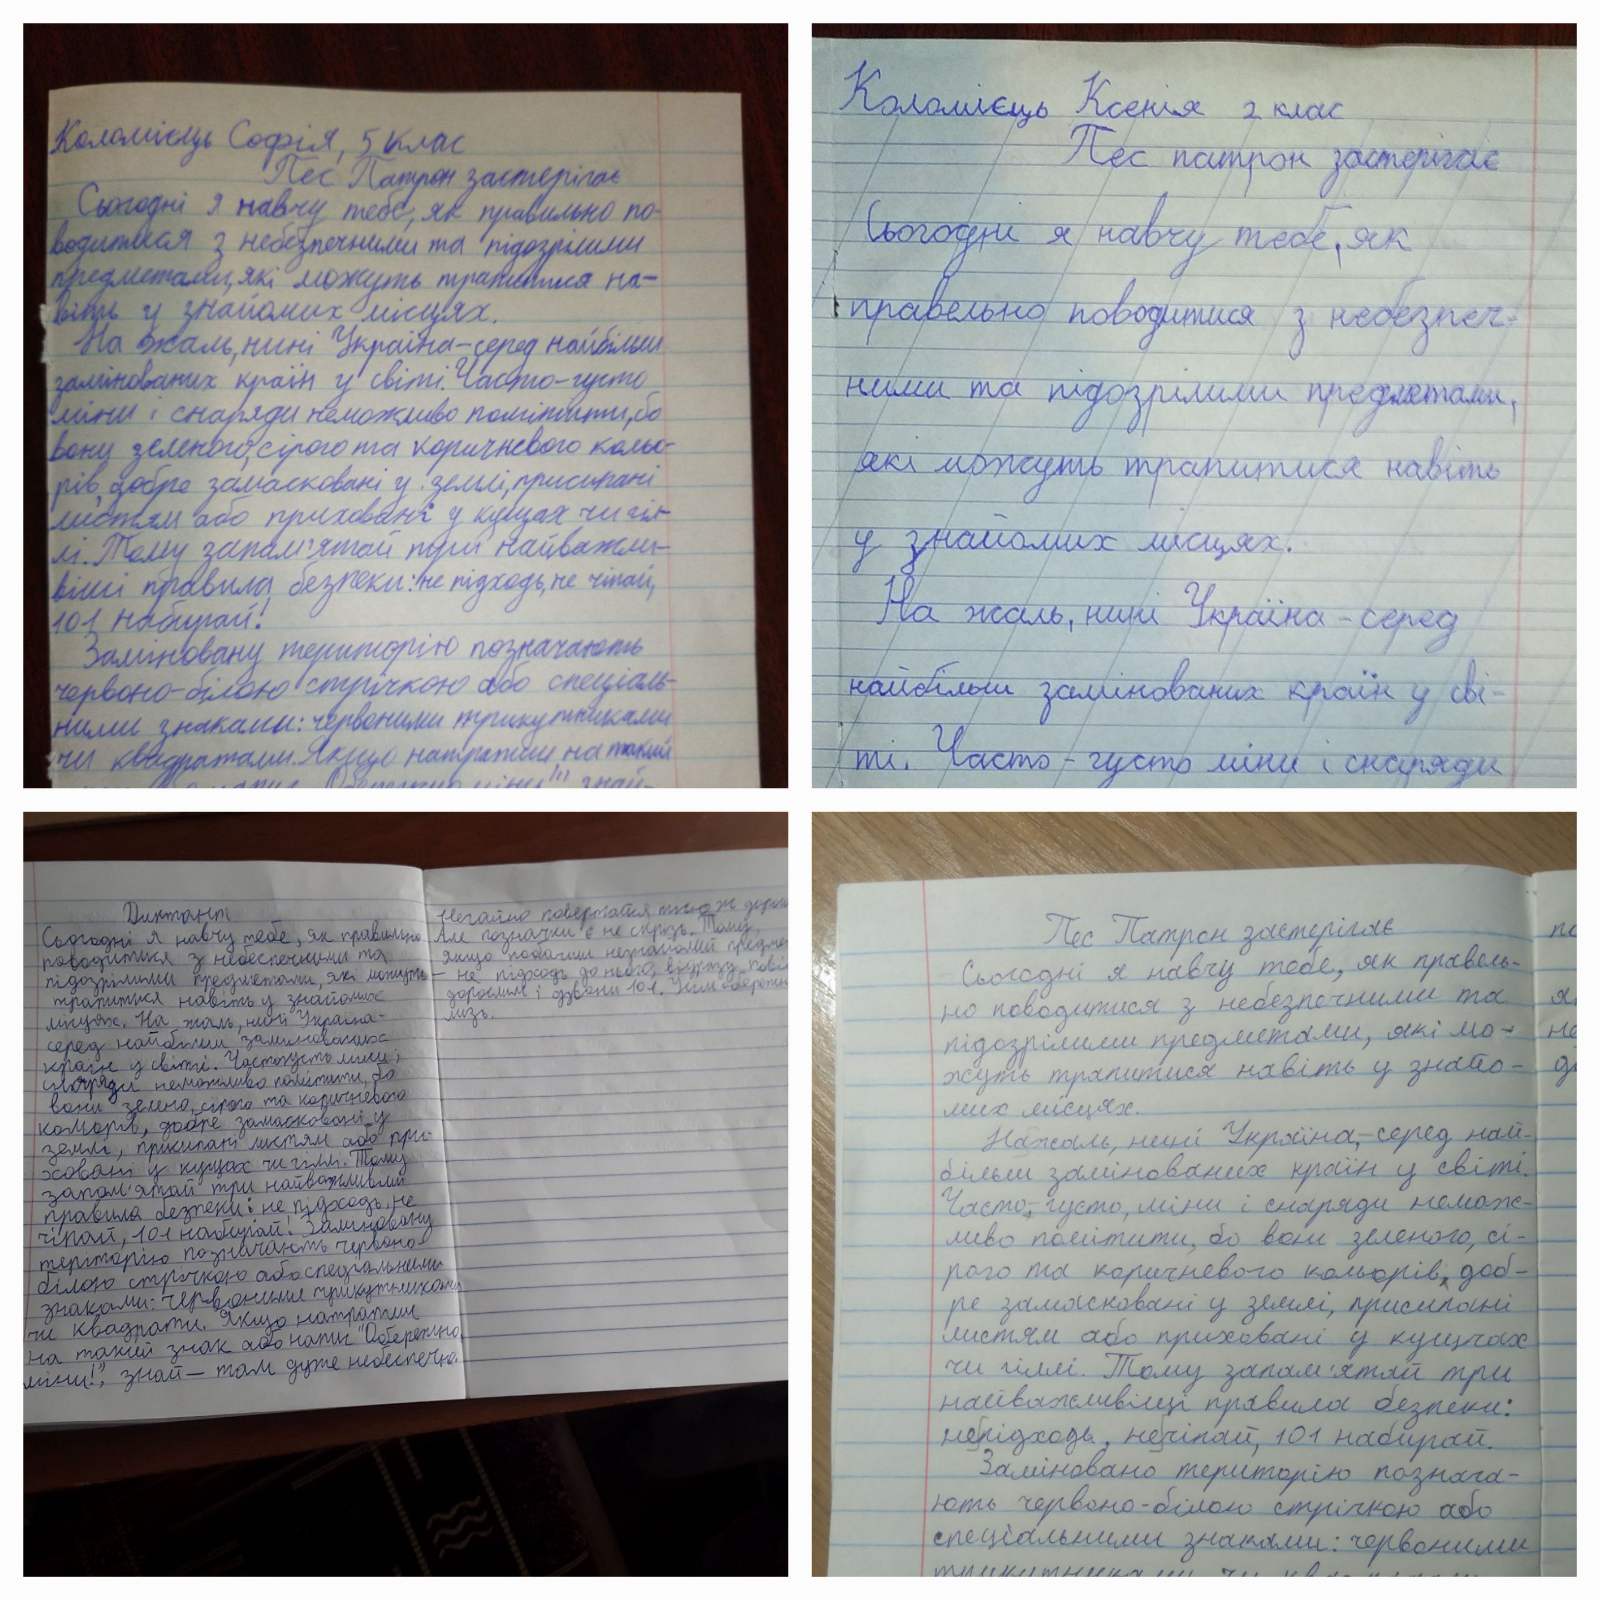 Коломієць Софія, 5 клас
Пес Патрон застерігає
Сьогодні я навчу тебе, як правильно по-
водитися з небезпечними та підозрілими
предметами, які можуть трапитися на-
віть у знайомих місцях.
На жаль, нині Україна-серед найбільш
замінованих країн у світі. Часто-густо
міни і снаряди неможливо помітити, бо
вони зеленого, сірого та коричневого кольо-
рів, добре замасковані у землі, присипані
листям або приховані у кущах чи гіл-
лі. Тому запам'ятай три найважли-
віші правила безпеки: не підходь, не чіпай,
101 набирай!
Заміновану територію позначають
червоно-білою стрічкою або спеціаль-
ними знаками: червоними трикутниками
чи квадратами. Якщо натрапиш на такий
Коломієць Ксенія 2 клас
Пес патрон застерігає
Сьогодні я навчу тебе, як
правельно поводитися з небезпеч-
ними та підозрілими предметами,
які можуть трапитися навіть
у знайомих місцях.
На жаль, нині Україна-серед
найбільш замінованих країн у сві-
ті. Часто-густо міни і снаряди
Диктант
Сьогодні я навчу тебе, як правильно
поводитися з небеспечними та
підозрілими предметами, які можуть
трапитися навіть у знайомих
місцях. На жаль, нині Україна-
серед найбільш замінованих
країн у світі. Частогусто міни і
снаряди неможливо помітити, бо
вони зелено, сірого та коричневого
кольорів, добре замасковані у
землі, присипані листям або при-
ховані у кущах чи гіллі. Тому
запам'ятай три найважливіші
правила безпеки: не підходь, не
чіпай, 101 набирай! Заміновану
територію позначають червоно-
білою стрічкою або спеціальними
знаками: червоними трикутниками
чи квадрати. Якщо натрапиш
на такий знак або напис "Обережно
міни!", знай— там дуже небеспечно.
Негайно повертайся тією ж
Але позначки є не скрізь. Тому,
якщо побачиш незнайомий
— не підходь до нього, відразу
дорослим і дзвони 101. Ним
лизь.
Пес Патрон застерігає
Сьогодні я навчу тебе, як правель-
но поводитися з небезпечними та
підозрілими предметами, які мо-
жуть трапитися навіть у знайо-
мих місцях.
Нажаль, нині Україна,-серед най-
більш замінованих країн у світі.
Часто, густо, міни і снаряди немож-
ливо помітити, бо вони зеленого, сі-
рого та коричневого кольорів, доб-
ре замасковані у землі, присипані
листям або приховані у кущчах
чи гіллі. Тому запам'ятай три
найважливіщі правила безпеки:
непідходь, нечіпай, 101 набирай.
Заміновано територію познача-
ють червоно-білою стрічкою або
спеціальними знаками: червоними